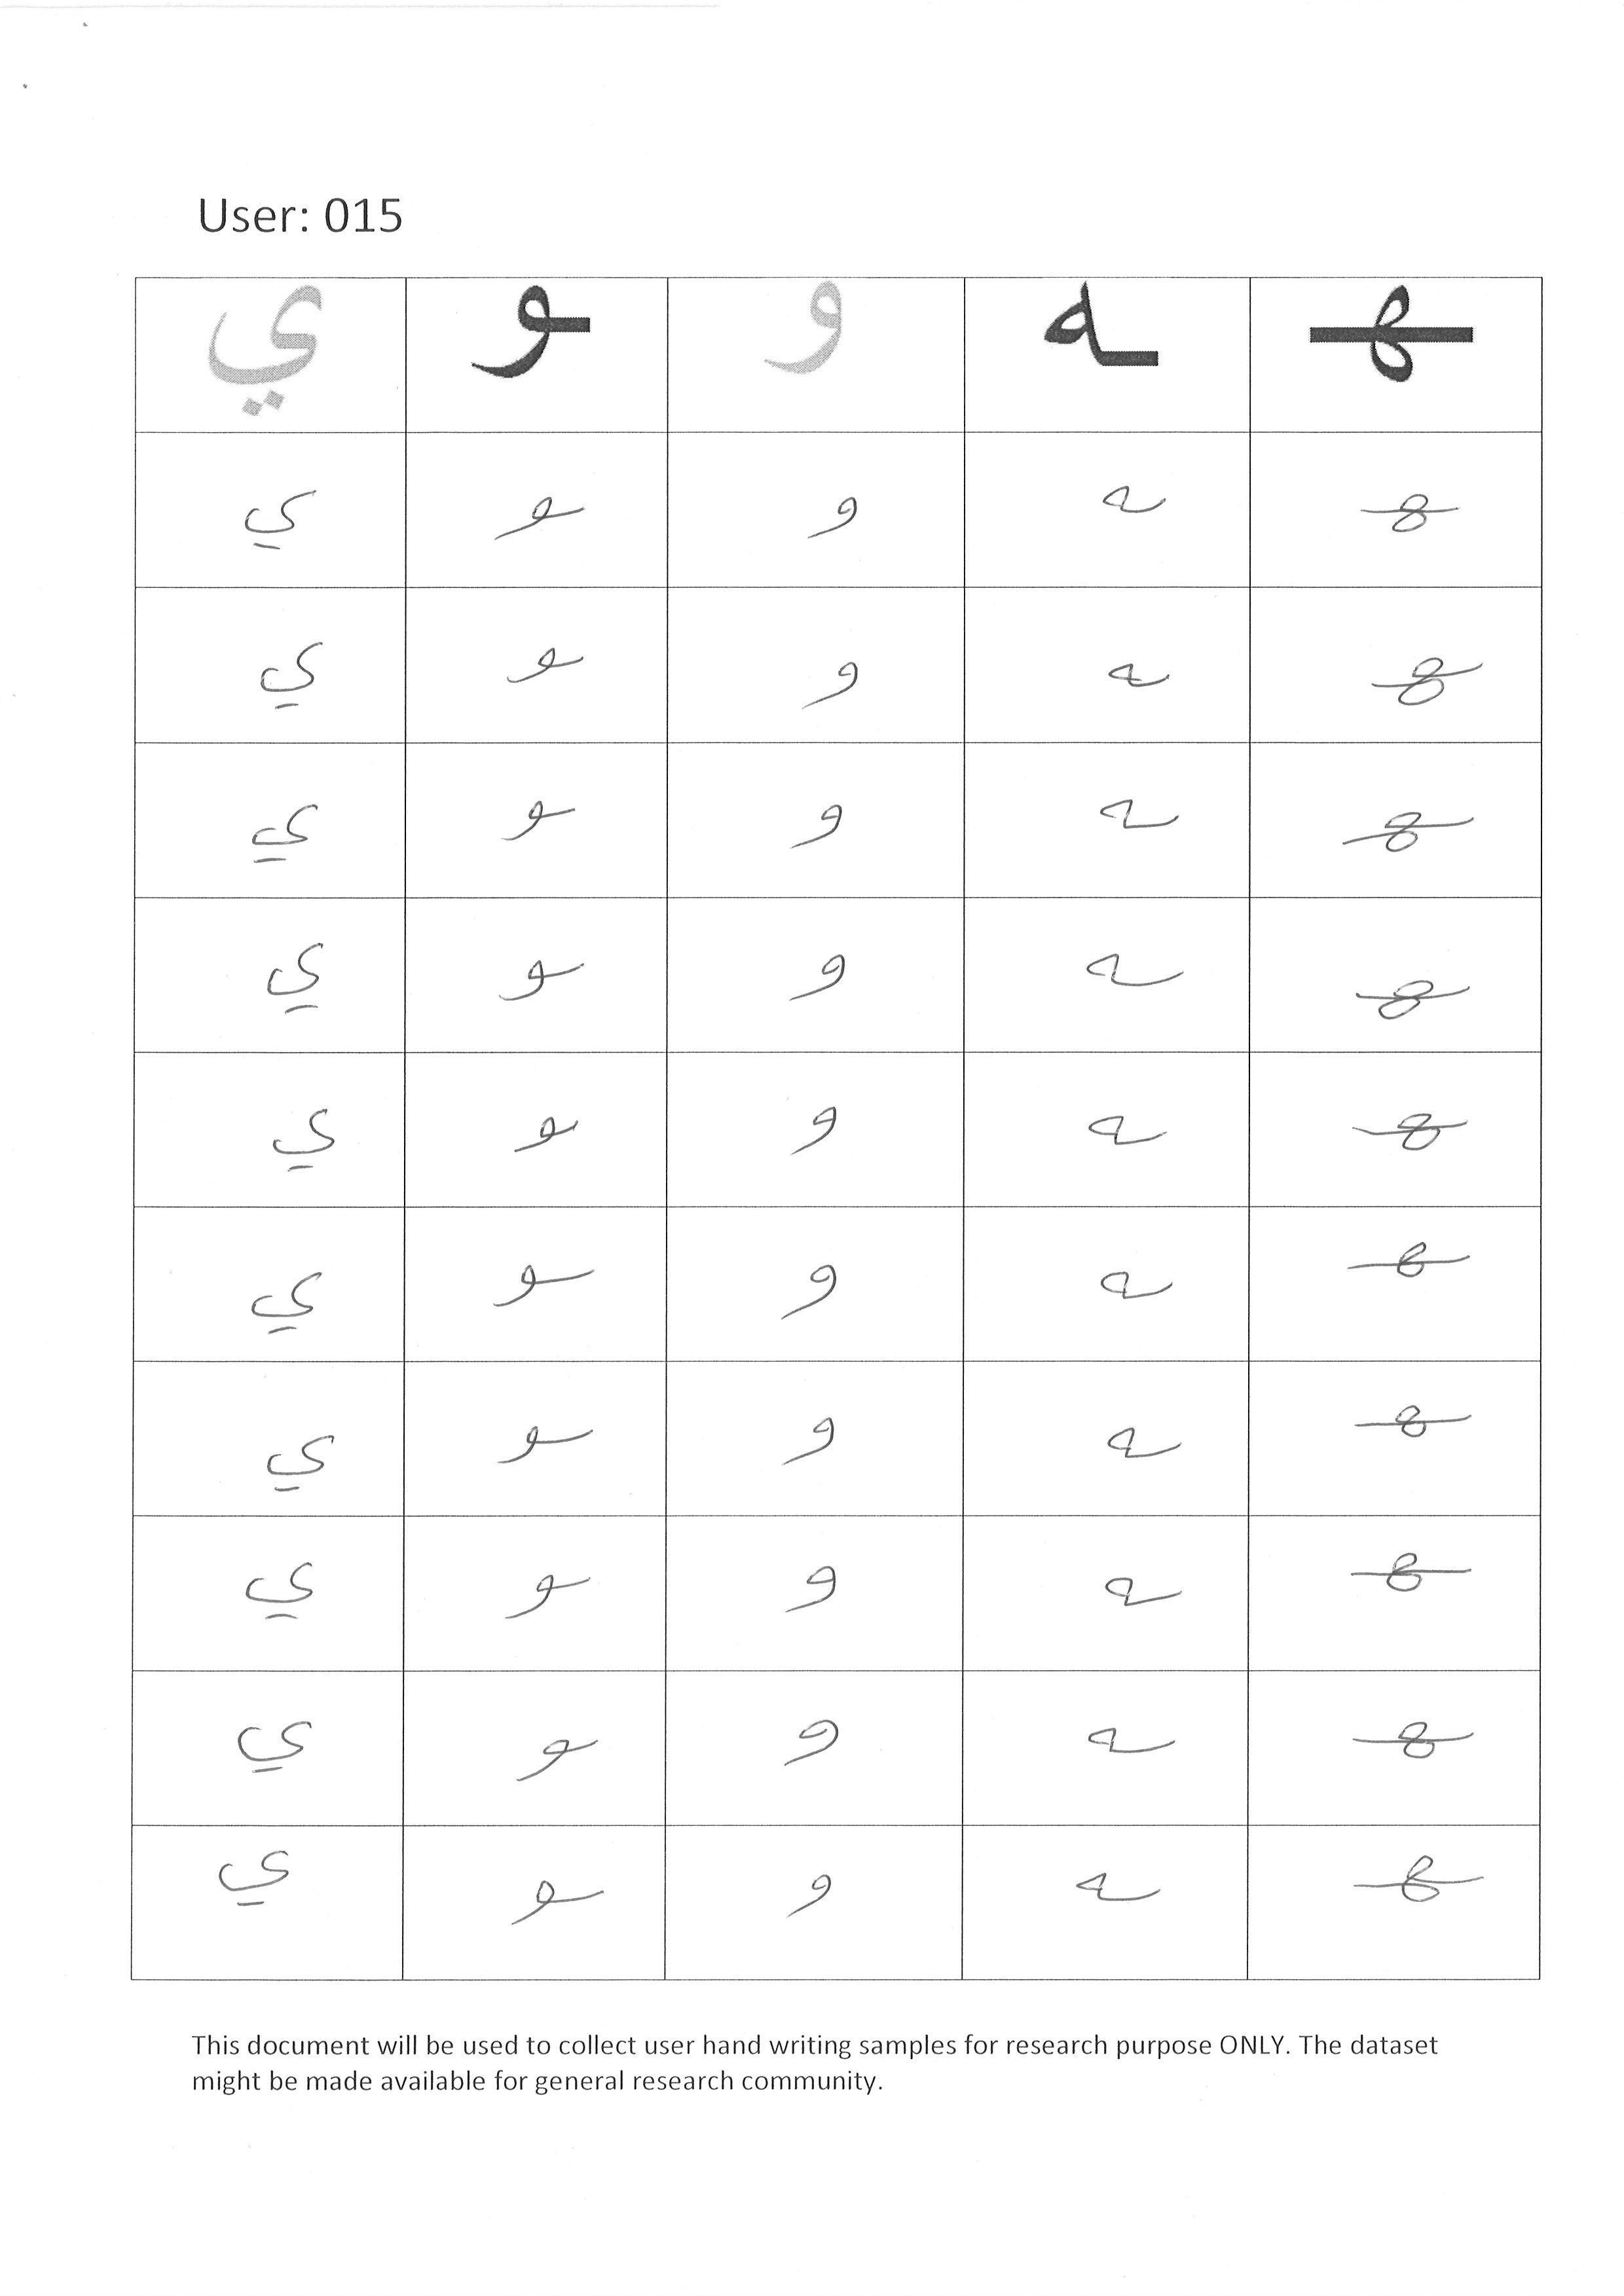 User: 015
ي ـو و ـه ـهـ
ي ـو و ـه ـهـ
ي ـو و ـه ـهـ
ي ـو و ـه ـهـ
ي ـو و ـه ـهـ
ي ـو و ـه ـهـ
ي ـو و ـه ـهـ
ي ـو و ـه ـهـ
ي ـو و ـه ـهـ
ي ـو و ـه ـهـ
ي ـو و ـه ـهـ
This document will be used to collect user hand writing samples for research purpose ONLY. The dataset
might be made available for general research community.